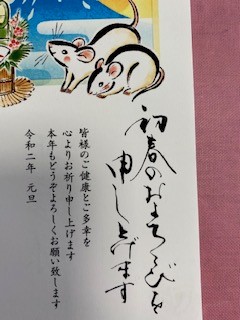 初春のおよろこびを
申し上げます
皆様のご健康とご多幸を
心よりお祈り申し上げます
本年もどうぞよろしくお願い致します
令和二年 元旦